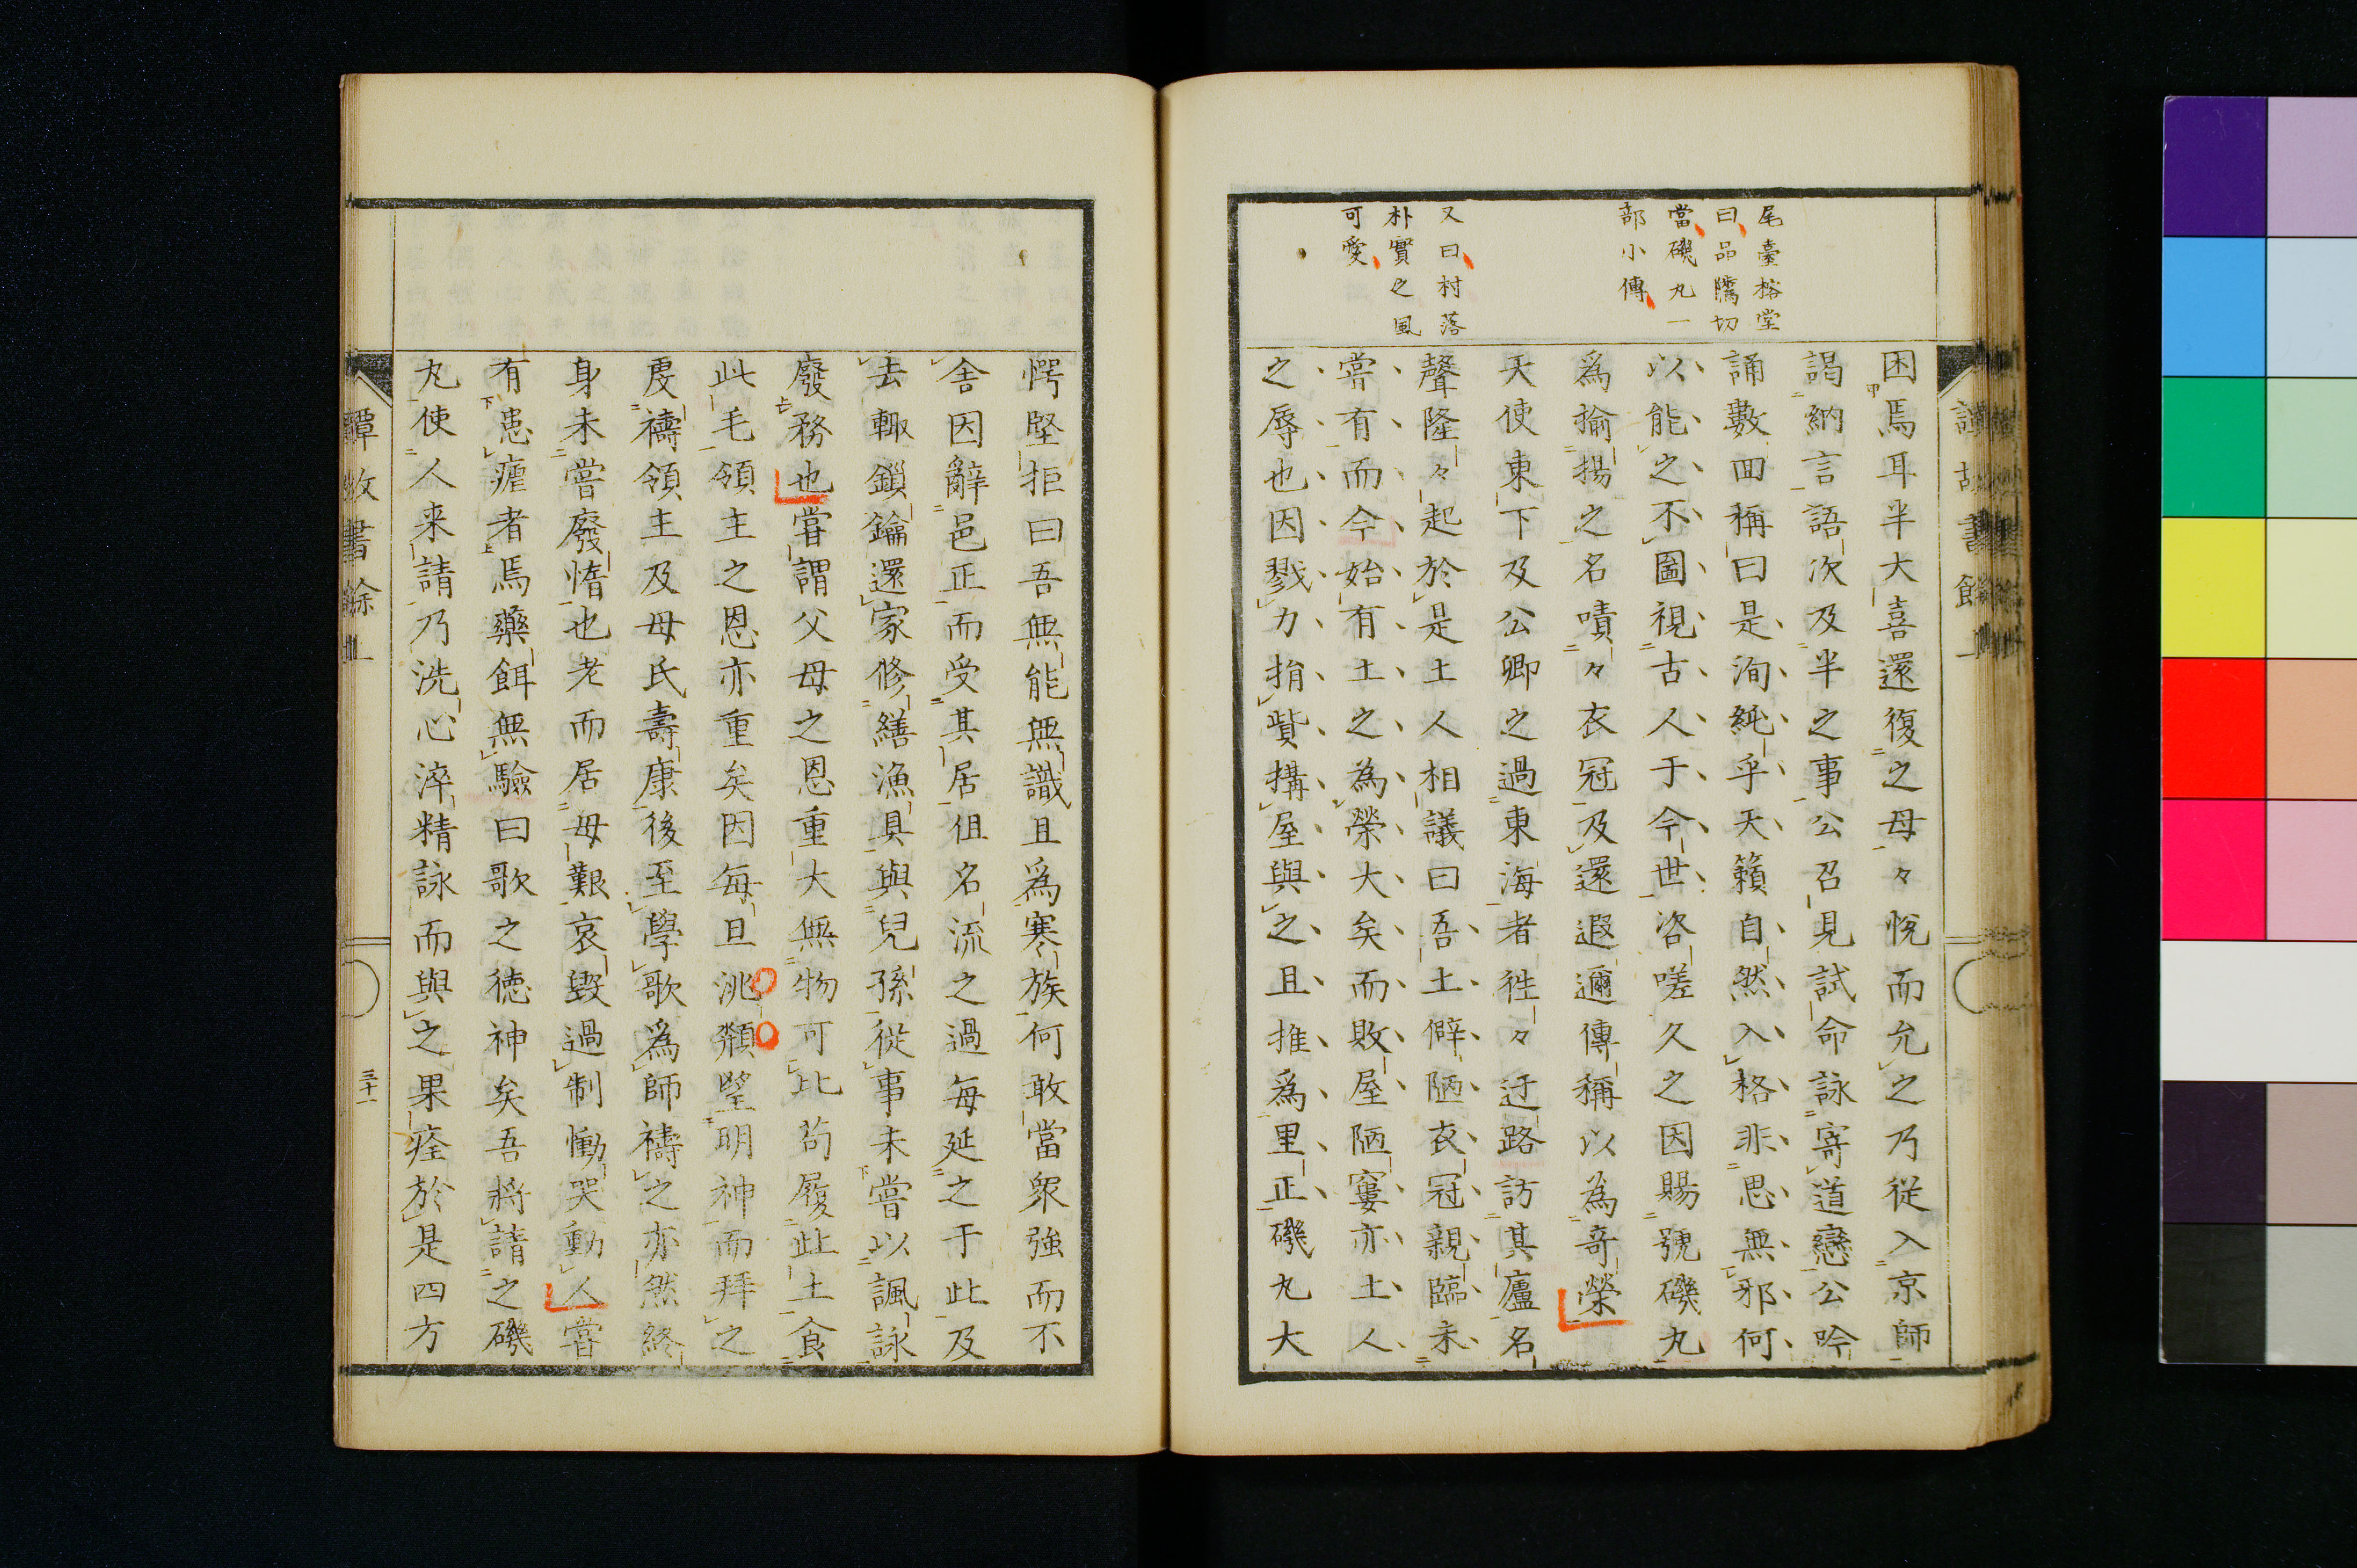 尾臺榕堂
曰品隲切
當磯丸一
部小傳
又曰村落
朴實之風
可愛
困焉耳半大喜還復之母々悅而允之乃從入京師
謁納言語次及半之事公召見試命詠寄道戀公吟
誦數回稱曰是洵純乎天籟自然入格非思無邪何
以能之不圖視古人于今世咨嗟久之因賜號磯丸
爲揄揚之名嘖々衣冠及還遐邇傳稱以為奇榮
天使東下及公卿之過東海者往々迂路訪其廬名
聲隆々起於是土人相議曰吾土僻陋衣冠親臨未
嘗有而今始有土之為榮大矣而敗屋陋窶亦土人
之辱也因戮力捐貲構屋與之且推爲里正磯丸大
愕堅拒曰吾無能無識且爲寒族何敢當衆強而不
舍因辭邑正而受其居徂名流之過每延之于此及
去輙鎖鑰還家修繕漁具與兒孫從事未嘗以諷詠
廢務也嘗謂父母之恩重大無物可比苟履此土食
此毛領主之恩亦重矣因每旦洮頮望明神而拜之
虔禱領主及母氏壽康後至學歌爲師禱之亦然終
身未嘗廢惰也老而居母艱哀毀過制慟哭動人嘗
有患瘧者焉藥餌無驗曰歌之徳神矣吾將請之磯
丸使人来請乃洗心淬精詠而與之果痊於是四方
譚故書餘上
三十一